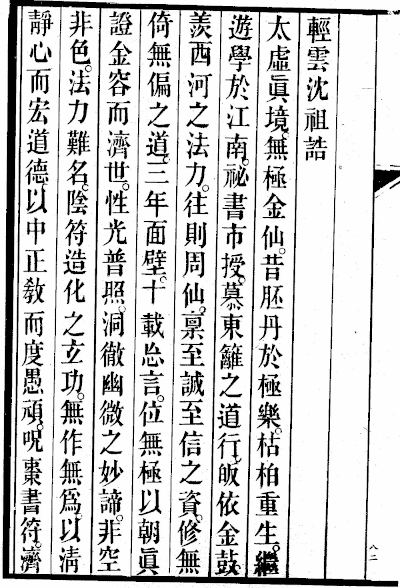 輕雲沈祖誥
太虛眞境。無極金仙。昔胚丹於極樂。枯柏重生。繼
遊學於江南。祕書市授。慕東籬之道行。皈依金鼓。
羨西河之法力。往則周仙。禀至誠至信之資。修無
倚無偏之道。三年面壁。十載忘言。位無極以朝眞
證金容而濟世。性光普照。洞徹幽微之妙諦。非空
非色。法力難名。陰符造化之立功。無作無爲。以淸
靜心而宏道德。以中正敎而度愚頑。呪棗書符。濟
八二